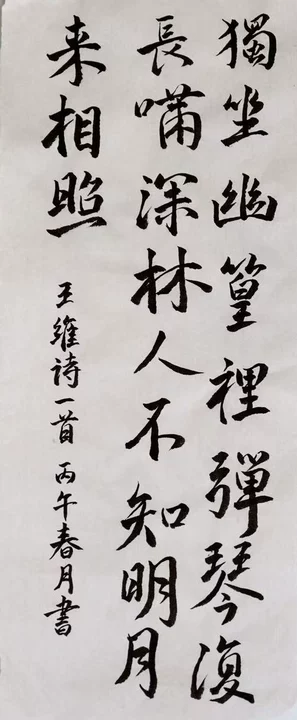 獨坐幽篁裡彈琴復
長嘯深林人不知明月
来相照
王維诗一首 丙午春月書